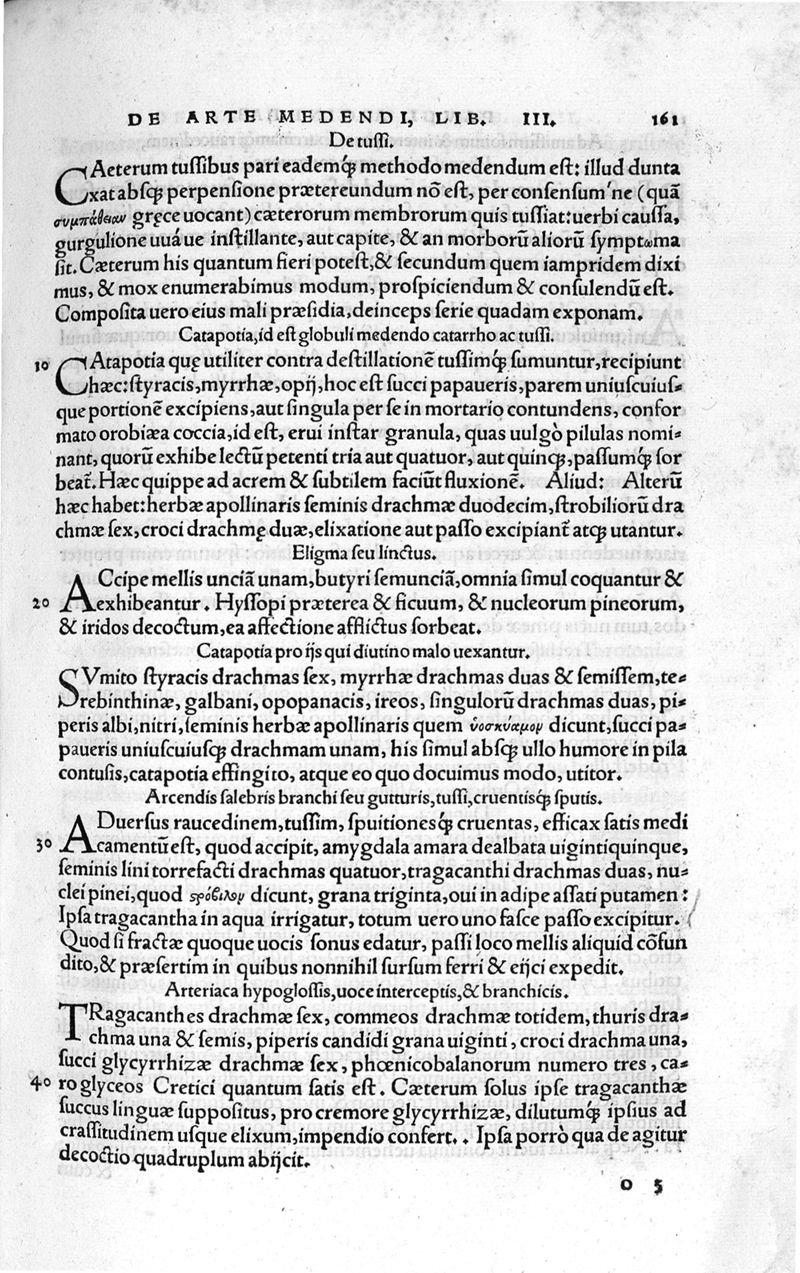 DE ARTE MEDENDI, LIB. III. 161
De tussi.
CAeterum tussibus pari eademq́; methodo medendum est: illud dunta
xat absq́; perpensione prætereundum nō est, per consensum'ne (quā
συμπάθειαν gręce uocant) cæterorum membrorum quis tussiat: uerbi caussa,
gurgulione uuá ue instillante, aut capite, & an morborū aliorū symptωma
sit. Cæterum his quantum fieri potest, & secundum quem iampridem dixi
mus, & mox enumerabimus modum, prospiciendum & consulendū est.
Composita uero eius mali præsidia, deinceps serie quadam exponam.
Catapotia, id est globuli medendo catarrho ac tussi.
10 CAtapotia quę utiliter contra destillationē tussimq́; sumuntur, recipiunt
hæc: styracis, myrrhæ, opij, hoc est succi papaueris, parem uniuscuius-
que portionē excipiens, aut singula per se in mortario contundens, confor
mato orobiæa coccia, id est, erui instar granula, quas uulgò pilulas nomi-
nant, quorū exhibe lectū petenti tria aut quatuor, aut quinq́;, passumq́; sor
beat̄. Hæc quippe ad acrem & subtilem faciūt fluxionē. Aliud: Alterū
hæc habet: herbæ apollinaris seminis drachmæ duodecim, strobiliorū dra
chmæ sex, croci drachmę duæ, elixatione aut passo excipiant̄ atq́; utantur.
Eligma seu linctus.
ACcipe mellis unciā unam, butyri semunciā, omnia simul coquantur &
20 exhibeantur. Hyssopi præterea & ficuum, & nucleorum pineorum,
& iridos decoctum, ea affectione afflictus sorbeat.
Catapotia pro ijs qui diutino malo uexantur.
SVmito styracis drachmas sex, myrrhæ drachmas duas & semissem, te-
rebinthinæ, galbani, opopanacis, ireos, singulorū drachmas duas, pi-
peris albi, nitri, seminis herbæ apollinaris quem ὑοσκύαμον dicunt, succi pa-
paueris uniuscuiusq́; drachmam unam, his simul absq́; ullo humore in pila
contusis, catapotia effingito, atque eo quo docuimus modo, utitor.
Arcendis salebris branchi seu gutturis, tussi, cruentisq́; sputis.
ADuersus raucedinem, tussim, spuitionesq́; cruentas, efficax satis medi
30 camentū est, quod accipit, amygdala amara dealbata uigintiquinque,
seminis lini torrefacti drachmas quatuor, tragacanthi drachmas duas, nu-
clei pinei, quod ϛρόβιλον dicunt, grana triginta, oui in adipe assati putamen:
Ipsa tragacantha in aqua irrigatur, totum uero uno fasce passo excipitur.
Quod si fractæ quoque uocis sonus edatur, passi loco mellis aliquid cōfun
dito, & præsertim in quibus nonnihil sursum ferri & eijci expedit.
Arteriaca hypoglossis, uoce interceptis, & branchicis.
TRagacanthes drachmæ sex, commeos drachmæ totidem, thuris dra-
chma una & semis, piperis candidi grana uiginti, croci drachma una,
succi glycyrrhizæ drachmæ sex, phœnicobalanorum numero tres, ca-
40 ro glyceos Cretici quantum satis est. Cæterum solus ipse tragacanthæ
succus linguæ suppositus, pro cremore glycyrrhizæ, dilutumq́; ipsius ad
crassitudinem usque elixum, impendio confert. . Ipsa porrò qua de agitur
decoctio quadruplum abijcit.
o 5